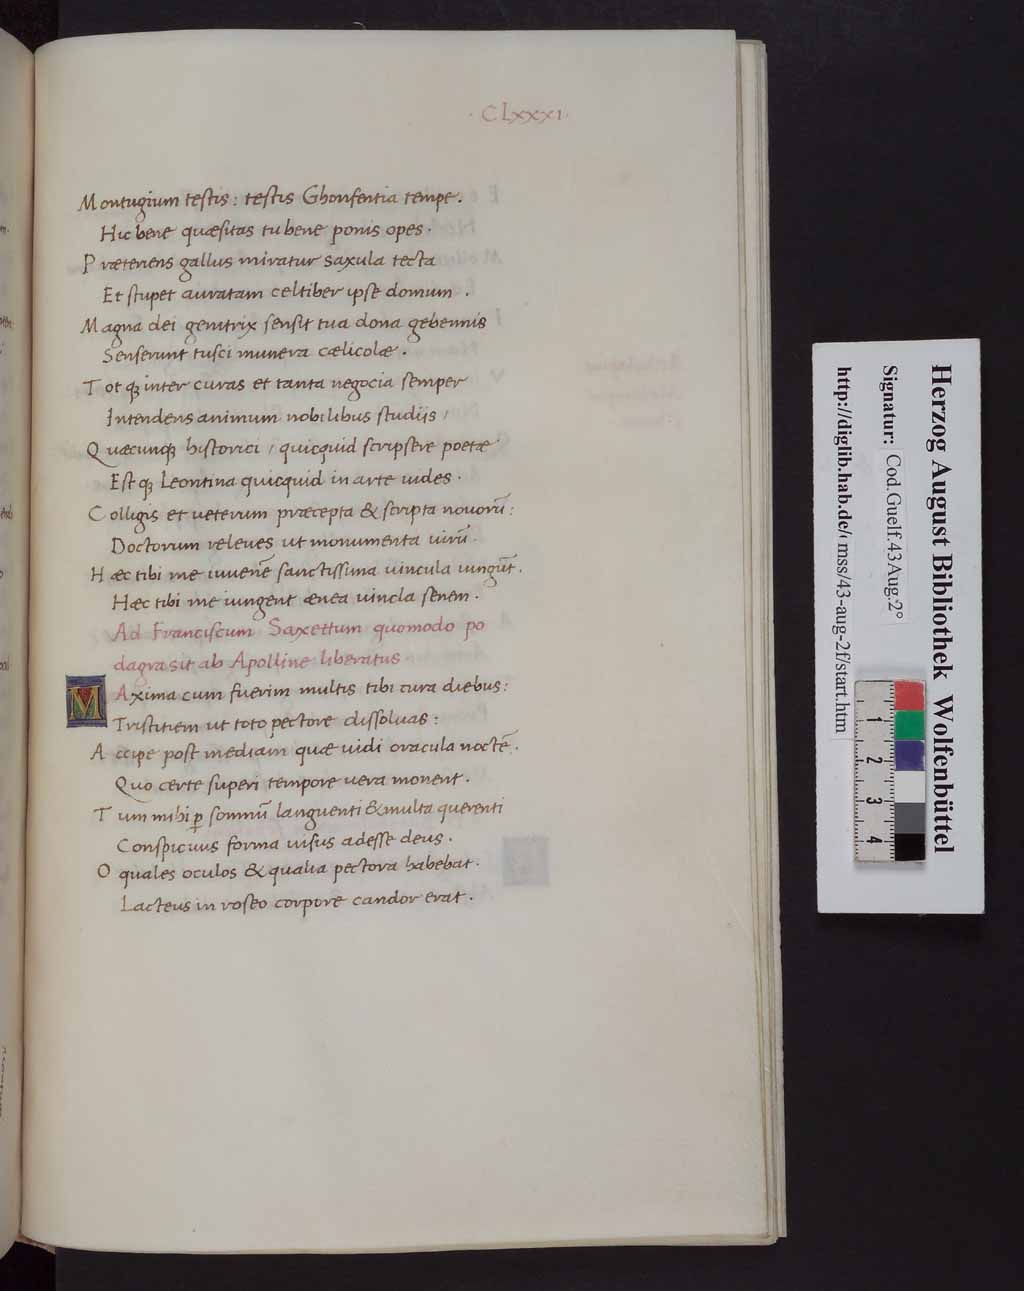 · CLxxxı ·
Montugium testis: testis Ghonfentia tempe.
Hic bene quæsitas tu bene ponis opes.
Præteriens gallus miratur saxula tecta
Et stupet auratam celtiber ipse domum.
Magna dei genitrix sensit tua dona gebennis
Senserunt tusci munera cælicolæ.
Totqꝫ inter curas et tanta negocia semper
Intendens animum nobilibus studijs /
Quæcunqꝫ historici / quicquid scripsere poetæ
Estqꝫ Leontina quicquid in arte uides.
Colligis et ueterum præcepta & scripta nouorū:
Doctorum releues ut monumenta uirū.
Hæc tibi me iuuenē sanctissima uincula iungūt.
Hæc tibi me iungent ænea uincla senem.
Ad Franciscum Saxettum quomodo po
dagra sit ab Apolline liberatus
MAxima cum fuerim multis tibi cura diebus:
Tristitiem ut toto pectore dissoluas:
Accipe post mediam quæ uidi oracula noctē.
Quo certe superi tempore uera monent.
Tum mihi ꝑ somnū languenti & multa querenti
Conspicuus forma uisus adesse deus.
O quales oculos & qualia pectora habebat.
Lacteus in roseo corpore candor erat.
Herzog August Bibliothek Wolfenbüttel
Signatur: Cod.Guelf.43 Aug.2°
http://diglib.hab.de/ mss/43-aug-2f/start.htm
1
2
3
4